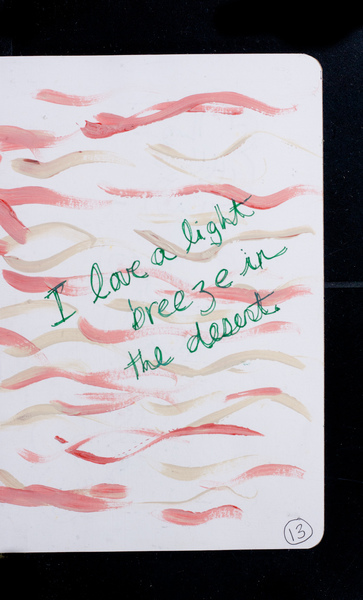 I love a light
breeze in
the desert.
13